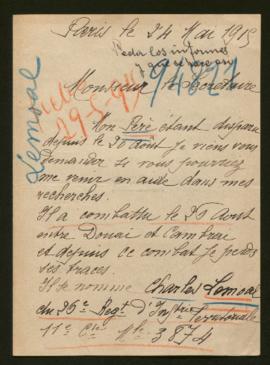 Paris le 24 Mai 1915
Pedir los informes
94821
Monsieur le Secrétaire
29-5-915
Lemoal
Mon Père étant disparu
depuis le 26 août je viens vous
demander si vous pourriez
me venir en aide dans mes
recherches.
Il a combattu le 26 Aout
entre Douai et Cambrai
et depuis ce combat je perds
ses traces.
Il se nomme Charles Lemoal
du 26e Regt d'Inftrie Territoriale
11e Cie Mle 3874